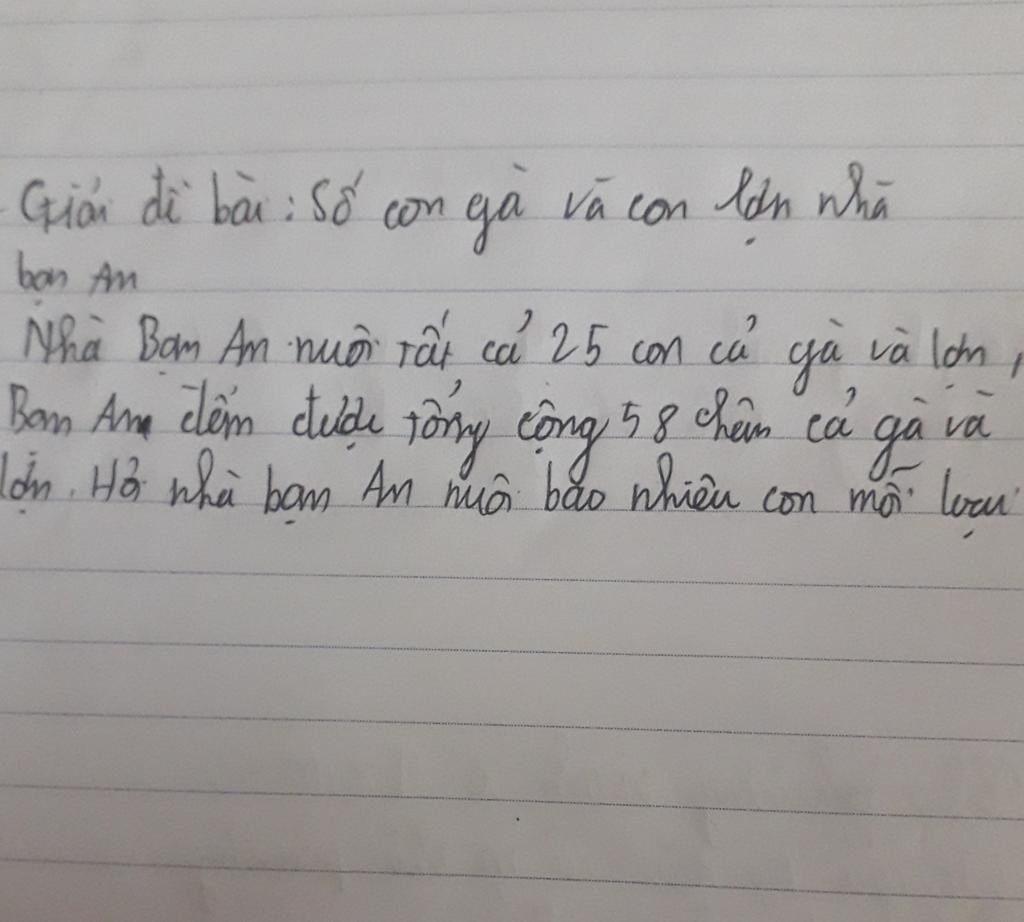 Giải đề bài: Số con gà và con lợn nhà
bạn An
Nhà Bạn An nuôi tất cả 25 con cả gà và lợn,
Bạn An đếm được tổng cộng 58 chân cả gà và
lợn. Hỏi nhà bạn An nuôi bao nhiêu con mỗi loại